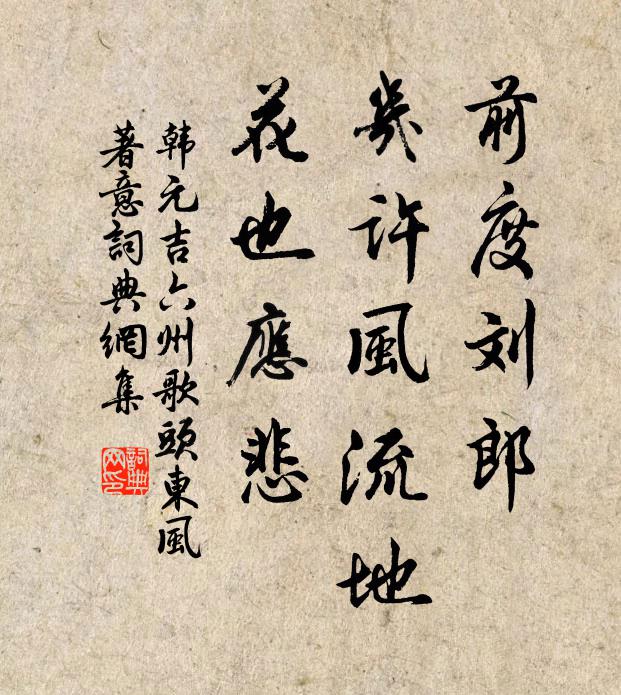 前度刘郎
幾许風流地
花也應悲
韩元吉六州歌頭東風
著意詞典網集
詞典网印